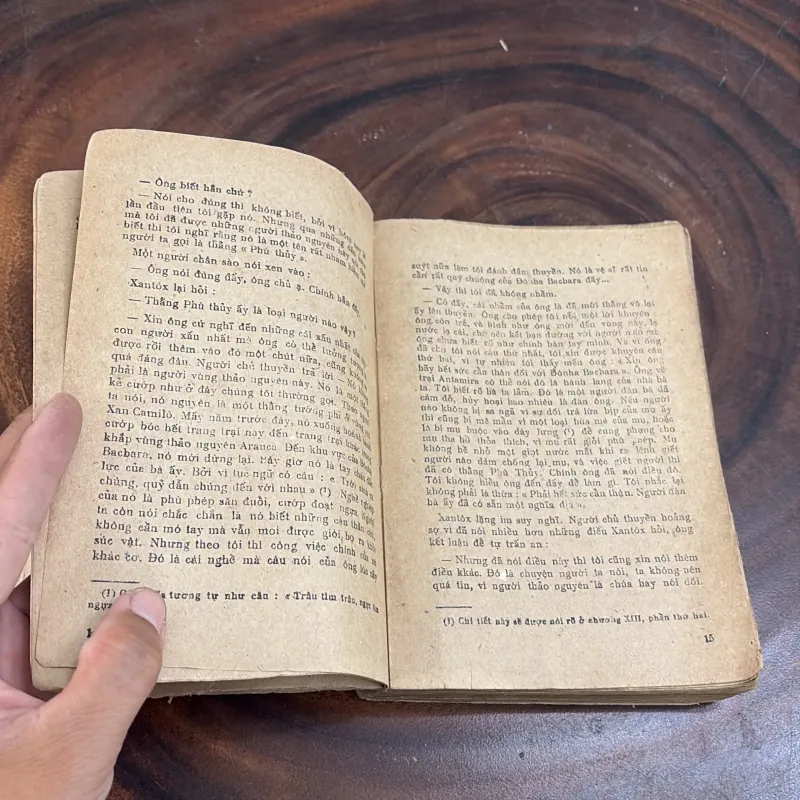 — Ông biết hắn chứ ?
— Nói cho đúng thì không biết, bởi vì
lần đầu tiên tôi gặp nó. Nhưng qua những
mà tôi đã được những người thảo nguyên này
biết thì tôi nghĩ rằng nó là một tên rất nham
người ta gọi là thằng « Phù thủy ».
Một người chân sào nói xen vào :
— Ông nói đúng đấy, ông chủ ạ. Chính hắn đấy.
Xantôx lại hỏi :
— Thằng Phù thủy ấy là loại người nào vậy ?
— Xin ông cứ nghĩ đến những cái xấu nhất của
con người xấu nhất mà ông có thể tưởng tượng
được rồi thêm vào đó một chút nữa, cũng
quá đáng đâu. Người chủ thuyền trả lời — Nó
phải là người vùng thảo nguyên này. Nó là một
kẻ cướp như ở đây chúng tôi thường gọi. Theo
ta nói, nó nguyên là một thằng tướng phỉ ở vùng
Xan Camilô. Mấy năm trước đây, nó xuống
cướp bóc hết trang trại này đến trang trại khác
khắp vùng thảo nguyên Arauca. Đến khu vực của
Bacbara, nó mới dừng lại. Bây giờ nó là tay chân
lực của bà ấy. Bởi vì tục ngữ có câu : « Trời sinh
chúng, quỷ dẫn chúng đến với nhau » (¹) Nghề
của nó là phù phép săn đuổi, cướp đoạt ngựa.
ta còn nói chắc chắn là nó biết những câu thần chú,
không cần mó tay mà vẫn moi được giòi bọ ra khỏi
súc vật. Nhưng theo tôi thì công việc chính của nó
khác cơ. Đó là cái nghề mà câu nói của ông lúc nãy
(1) tương tự như câu : « Trâu tìm trâu, ngựa tìm
ngựa
suýt nữa làm tôi đánh đắm thuyền. Nó là vệ sĩ rất tin
cẩn rất quý chuộng của Đônha Bacbara đấy...
— Vậy thì tôi đã không nhầm.
— Có đấy, cái nhầm của ông là đã mời thằng vô lại
ấy lên thuyền. Ông cho phép tôi nói một lời khuyên
ông còn trẻ, và hình như ông mới đến vùng này, lạ
nước lạ cái, chớ nên kết bạn đường với người nào mà
ông chưa biết rõ như chính bàn tay mình. Và vì ông
đã cho tôi nói câu thứ nhất, tôi xin được khuyên câu
thứ hai, vì tự nhiên tôi thấy mến ông : « Xin ông
hãy hết sức cẩn thận đối với Đônha Bacbara ». Ông về
trại Antamira có thể nói đó là hành lang của nhà bà
ta. Tôi biết rõ bà ta lắm. Đó là một người đàn bà đã
cám dỗ, hủy hoại bao nhiêu là đàn ông. Nếu người
nào không bị sa ngã vì sự dối trá lừa bịp của mụ ấy
thì cũng bị mê mẩn vì một loại bùa mê của mụ, hoặc
là bị mụ buộc vào dây lưng (¹) để cung phụng cho
mụ tha hồ thỏa thích, vì mụ rất giỏi phù phép. Mụ
không hề nhỏ một giọt nước mắt khi ra lệnh giết
người nào dám chống lại mụ, và việc giết người thì
đã có thằng Phù Thủy. Chính ông đã nói điều đó.
Tôi không hiểu ông đến đây để làm gì. Tôi nhắc lại
không phải là thừa : « Phải hết sức cẩn thận. Người đàn
bà ấy đã có sẵn một nghĩa địa ».
Xantôx lặng im suy nghĩ. Người chủ thuyền hoảng
sợ vì đã nói nhiều hơn những điều Xantôx hỏi, ông
kết luận để tự trấn an :
— Nhưng đã nói điều này thì tôi cũng xin nói thêm
điều khác. Đó là chuyện người ta nói, ta không nên
quá tin, vì người thảo nguyên là chúa hay nói dối.
(1) Chi tiết này sẽ được nói rõ ở chương XIII, phần thứ hai.
15